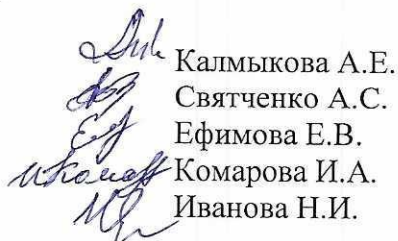 Калмыкова А.Е.
Святченко А.С.
Ефимова Е.В.
Комарова И.А.
Иванова Н.И.